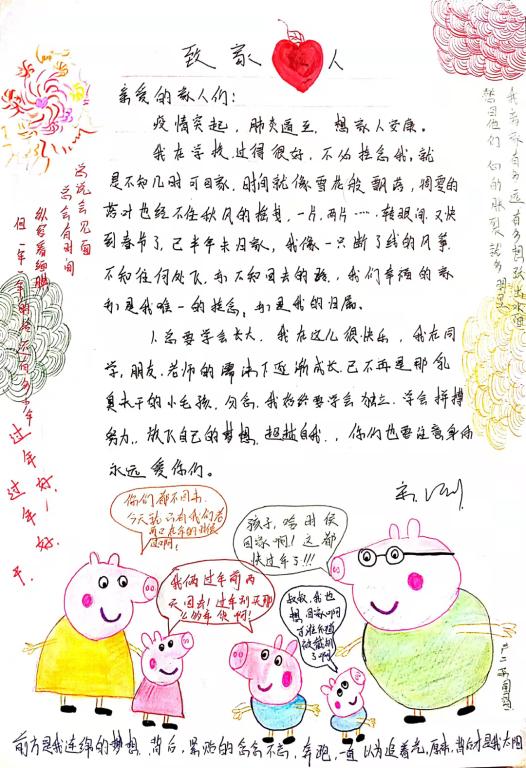 致家人
亲爱的家人们：
疫情突起，肺炎而立，想家人安康。
我在学校过得很好，不必挂念我，就
是不知几时可回家，时间就像雪花般飘落，凋零的
落叶也经不住秋风的摇曳，一片，两片……转眼间又快
到春节了，已半年未归家，我像一只断了线的风筝，
不知往何处飞，亦不知回去的路，我们幸福的家
亦是我唯一的挂念，亦是我的归属。
人总要学会长大，我在这儿很快乐，我在同
学，朋友，老师的熏沐下逐渐成长，已不再是那乳
臭未干的小毛孩，勿念，我始终要学会独立，学会拼搏
努力，放飞自己的梦想，超越自我，你们也要注意身体
永远爱你们。
总说会见面
总会有时间
纵容着细胞
但一年一年
过年好！
过年好。
你们都不回来，
今天就只有我们老
孩子，啥时候
回家啊！这都
快过年了！！！
我俩过年前两
天回去！过年别买那
么的东西啊！
叔叔，我也
想回家啊
前方是我连绵的梦想，背后，累赘的念念不忘，奔跑，一直以为追着光，原来，背后才是我太阳